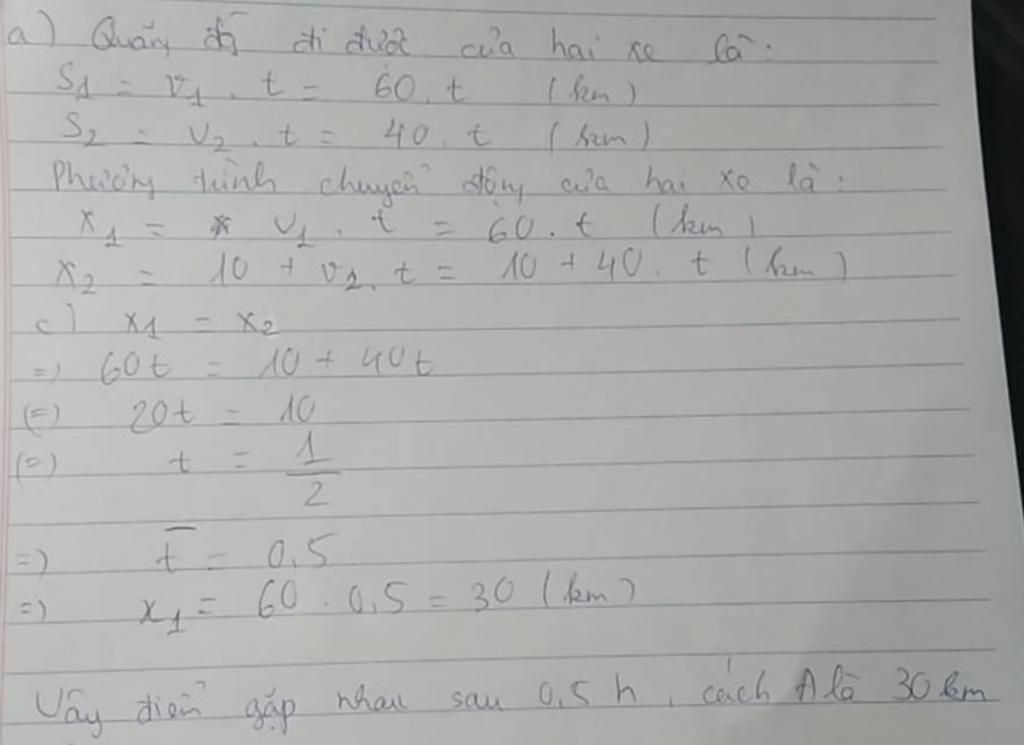 a) Quãng đg đi được của hai xe là:
S1 = v1 . t = 60. t (km)
S2 = v2 . t = 40. t (km)
Phương trình chuyển động của hai xe là:
x1 = v1 . t = 60. t (km)
x2 = 10 + v2. t = 10 + 40. t (km)
c) x1 = x2
=) 60t = 10 + 40t
(=) 20t = 10
(=) t = 1/2
=) t = 0,5
=) x1 = 60 . 0,5 = 30 (km)
Vậy điểm gặp nhau sau 0,5 h, cách A là 30 km